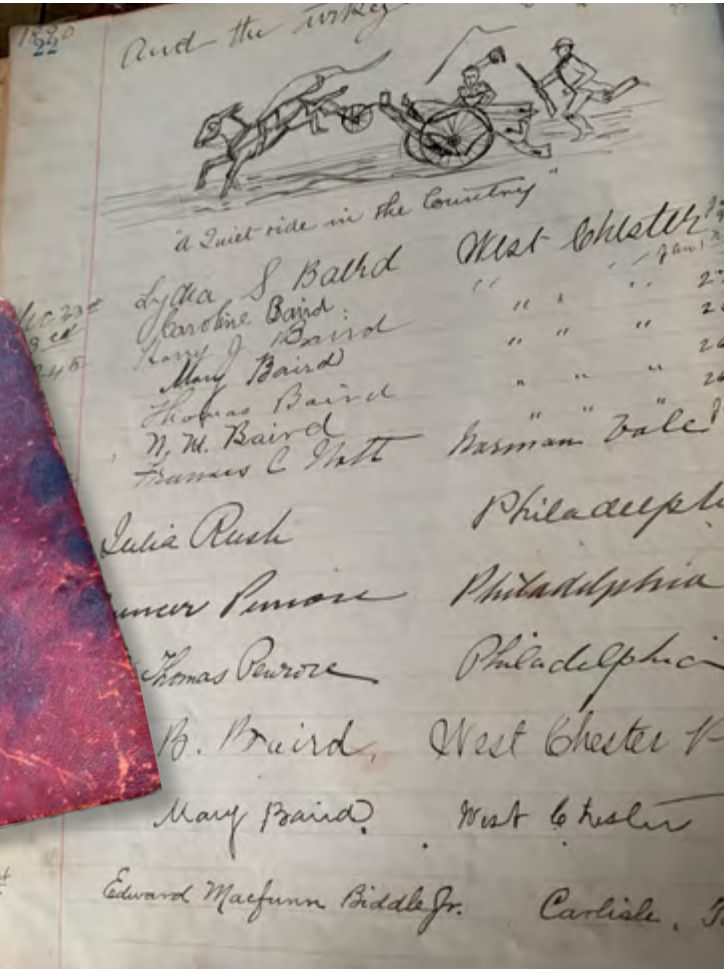 22
And the turkey
"A Quiet ride in the Country"
Lydia S Baird West Chester
Caroline Baird " " "
Harry J. Baird " " "
Mary Baird " " "
Thomas Baird " " "
N. M. Baird " " "
Frances C
Julia Rush
Penrose Philadelphia
Thomas Penrose Philadelphia
B. Baird, West Chester
Mary Baird. West Chester
Edward Macfunn Biddle Jr. Carlisle,